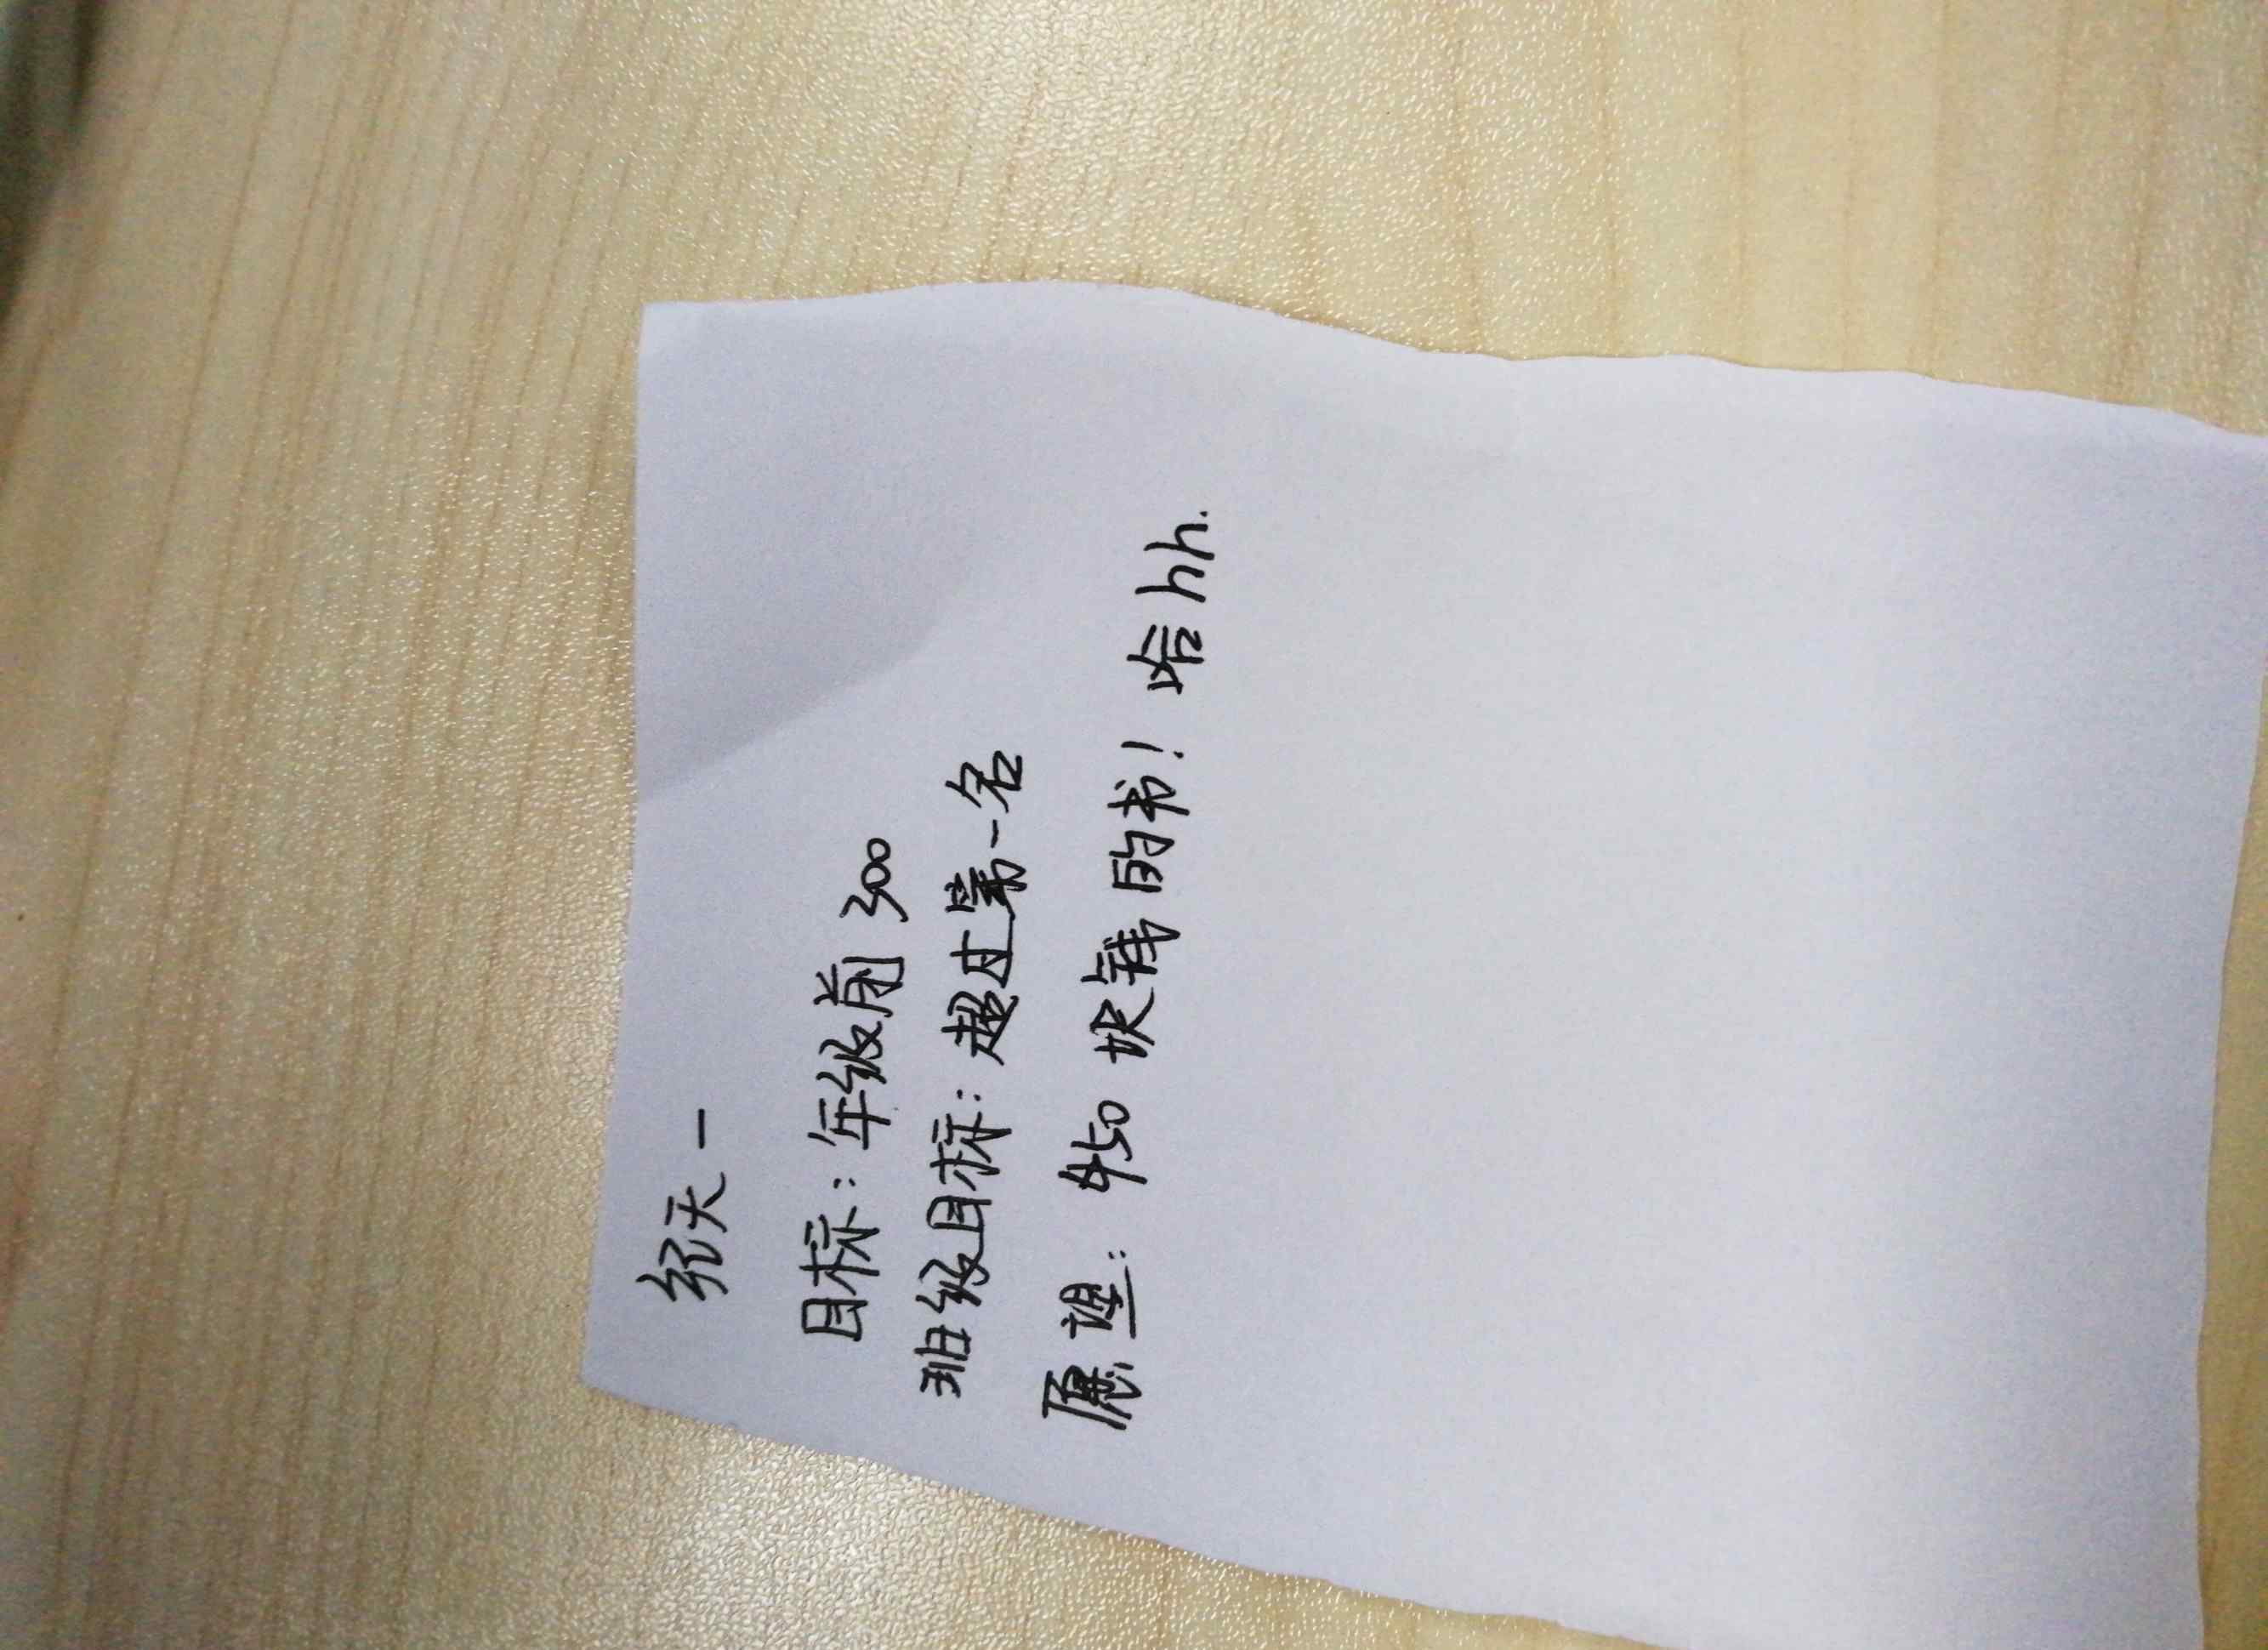 纪天一
目标：年级前300
班级目标：超过第一名
愿望：450块钱的书！哈hh.